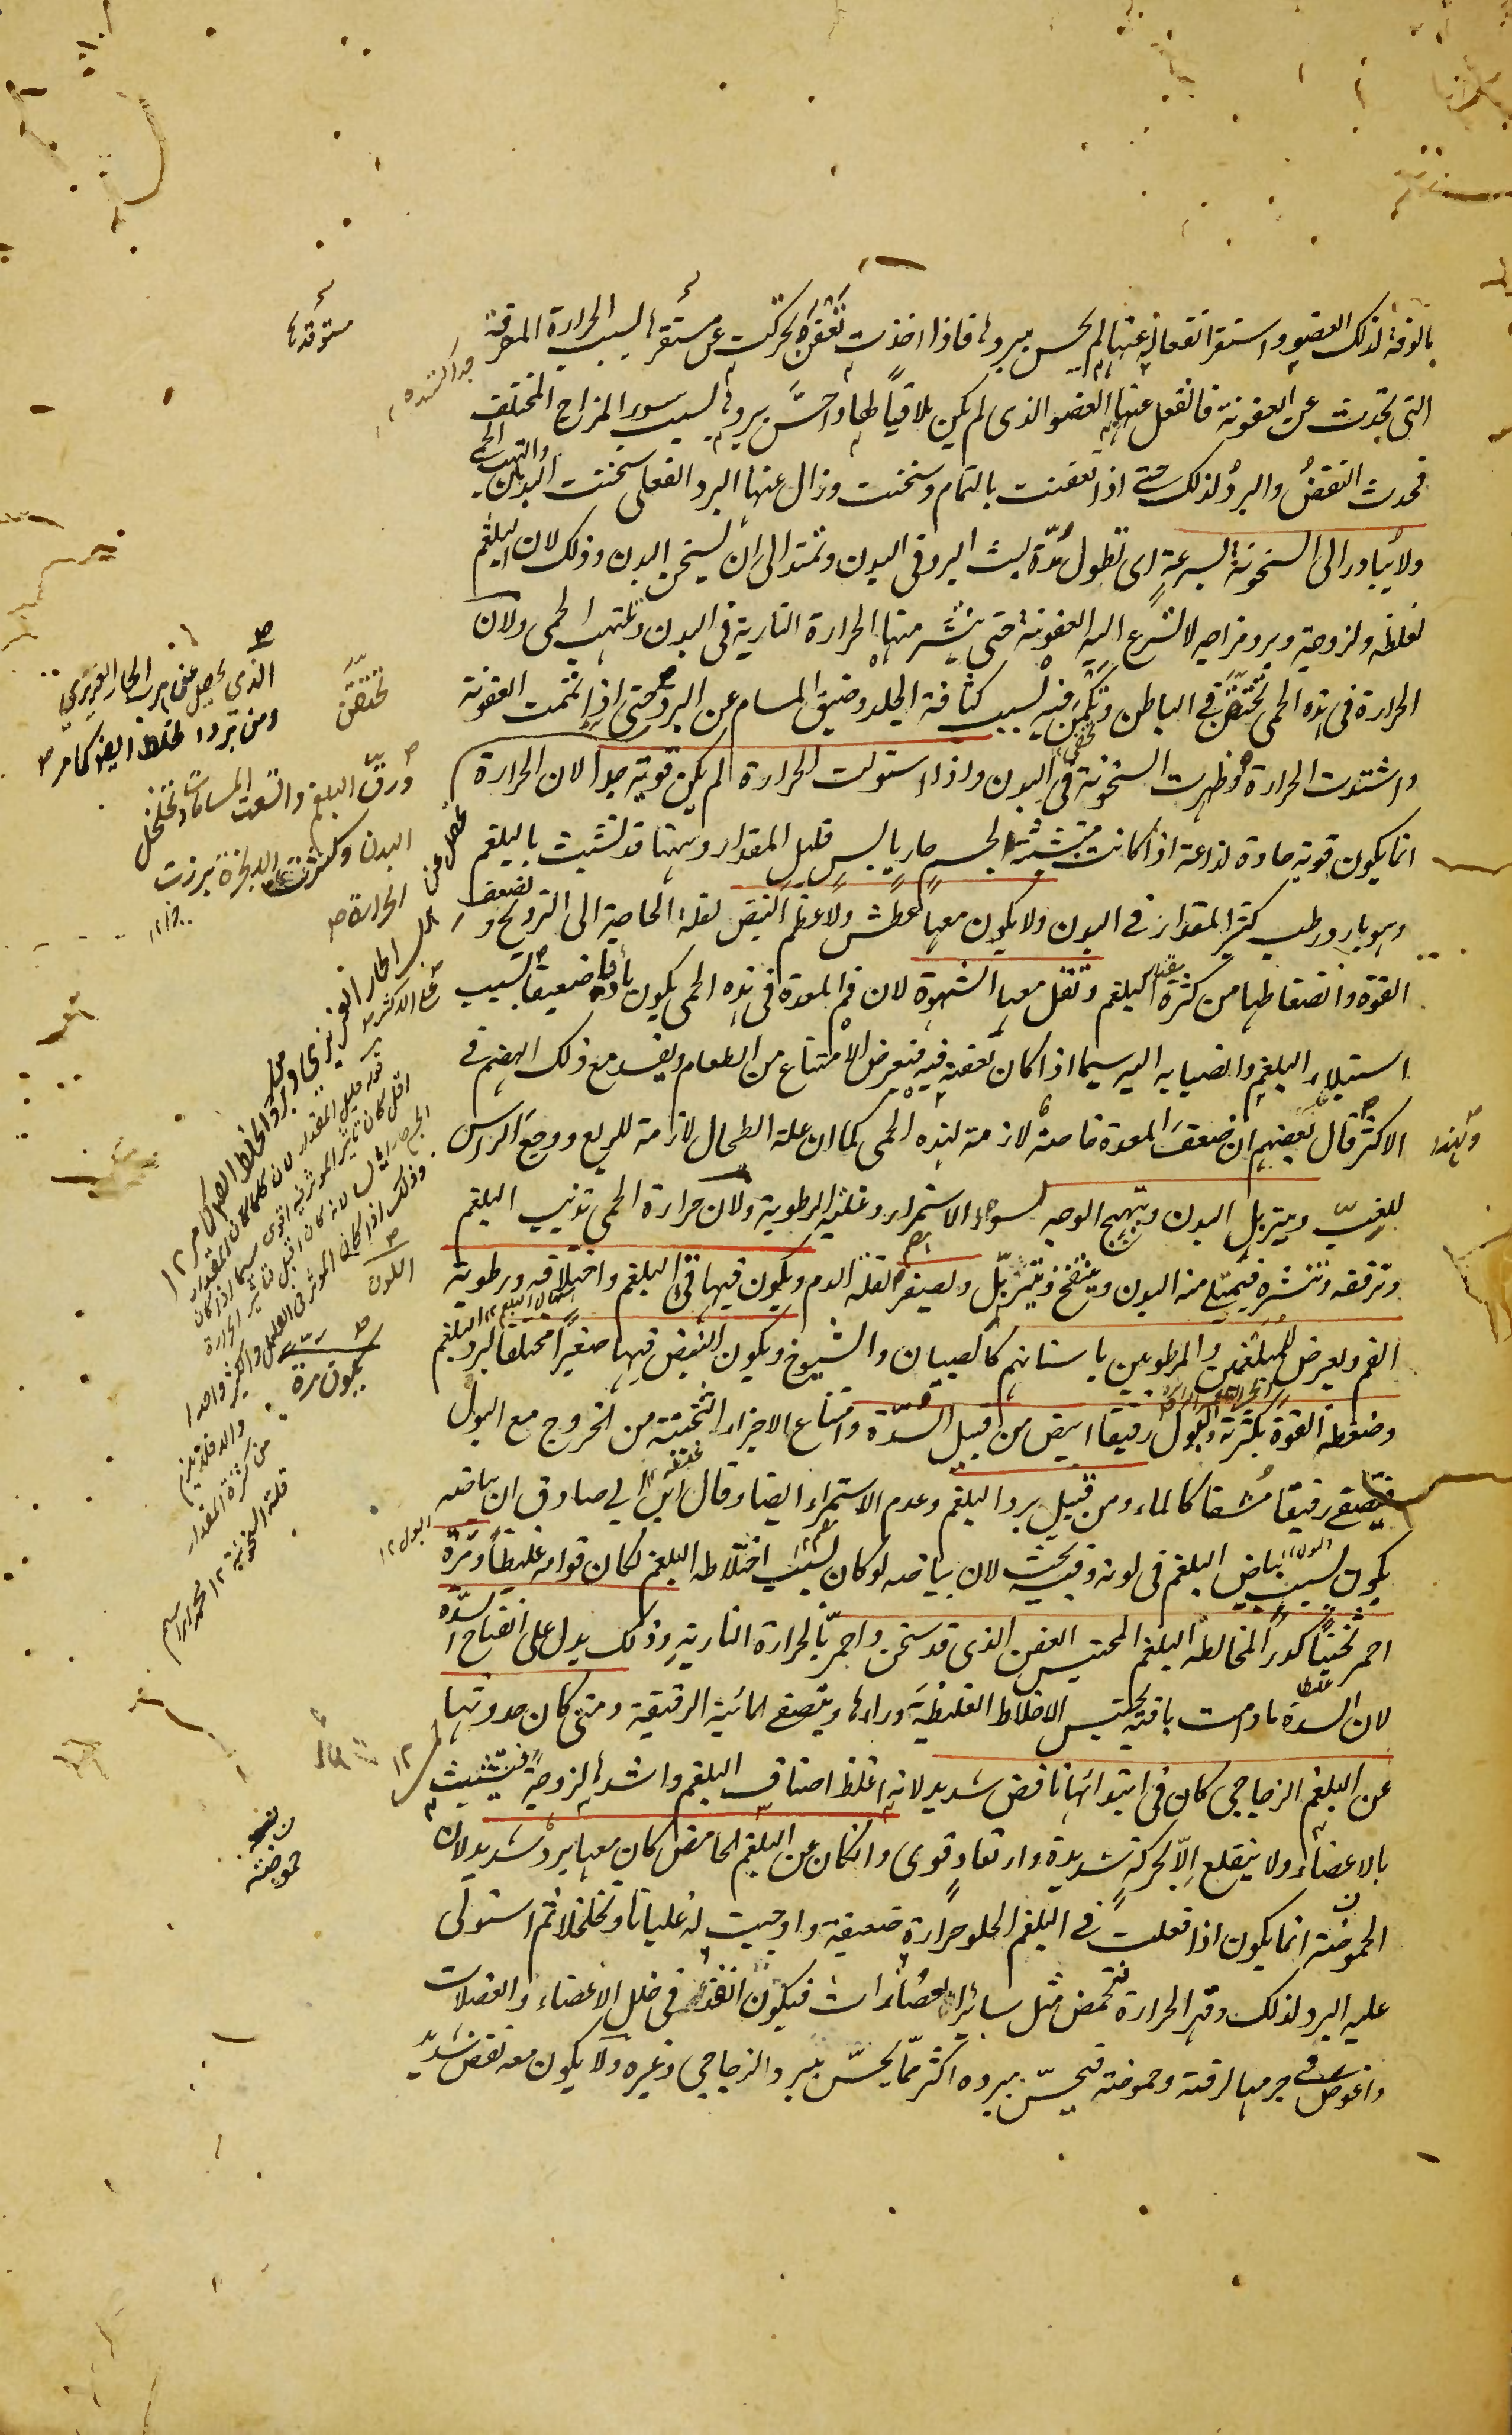 بالوفة لذلك العضو واستقر انفعاله عنها لم يحس ببردها فاذا اخذت تتعفن تحركت عن مستقرها بسبب الحرارة المعرقة
التى تحدث عن العفونة فانفعل عنها العضو الذى لم يكن ملاقيا لها واحسّ ببردها بسبب سوء المزاج المختلف
فحدث النفض والبرد لذلك حتى اذا تعفنت بالتمام وسخنت وزال عنها البرد الفعلى سخنت البدن والتهبت الحمى
ولا يبادر الى السخونة بسرعة اى تطول مدة لبث البرد فى البدن وتمتد الى ان يسخن البدن وذلك لان البلغم
لغلظه ولزوجته وبرد مزاجه لا تسرع اليه العفونة حتى ينتشر منها الحرارة النارية فى البدن وتلتهب الحمى ولان
الحرارة فى هذه الحمى تختنق فى الباطن وتكمن فيه بسبب كثافة الجلد وضيق المسام عن البرد حتى اذا تمت العفونة
واشتدت الحرارة ظهرت السخونة فى البدن واذا استولت الحرارة لم يكن قوية جدا لان الحرارة
انما يكون قوية حادة لذاعة اذا كانت متشبثة بجسم حار يابس قليل المقدار وههنا قد تشبثت بالبلغم
وهو بارد رطب كثير المقدار فى البدن ولا يكون معها عطش ولا عظم النبض لقلة الحاجة الى الترويح ولضعف
القوة وانضغاطها من كثرة البلغم وتقل معها الشهوة لان فم المعدة فى هذه الحمى يكون ضعيفا بسبب
استيلاء البلغم وانصبابه اليه سيما اذا كان تعفنه فيه فيعرض الامتناع من الطعام ويفسد مع ذلك الهضم فى
الاكثر قال بعضهم ان ضعف المعدة خاصة لازمة لهذه الحمى كما ان علة الطحال لازمة للربع ووجع الراس
للغب ويتربل البدن ويتهيج الوجه لسوء الاستمرار وغلبة الرطوبة ولان حرارة الحمى تذيب البلغم
وترققه وتنشره فيمتلى منه البدن وينتفخ ويتربل ويصفر لقلة الدم ويكون فيها قىء البلغم واختلافه ورطوبة
الفم ويعرض للمبلغمين والمرطوبين باسنانهم كالصبيان والشيوخ ويكون النبض فيها صغيرا مختلفا لبرد البلغم
وضغطه القوة بكثرته والبول رقيقا ابيض من قبيل السدة وامتناع الاجزاء الثخينة من الخروج مع البول
فيتصفى رقيقا مشفا كالماء ومن قبيل برد البلغم وعدم الاستمراء ايضا وقال ابن ابى صادق ان بياضه
يكون بسبب بياض البلغم فى لونه وفيه بحث لان بياضه لو كان بسبب اختلاطه البلغم لكان قوامه غليظا ومرة
احمر ثخينا كدرا لمخالطة البلغم المحتبس العفن الذى قد سخن واحمر بالحرارة النارية وذلك يدل على انفتاح السدة
لان السدة ما دامت باقية يحتبس الاخلاط الغليظة وراءها ويتصفى المائية الرقيقة ومتى كان حدوثها
عن البلغم الزجاجى كان فى ابتدائها نافض شديد لانه اغلظ اصناف البلغم واشدها لزوجة فيتشبث
بالاعضاء ولا ينقلع الّا بحركة شديدة وارتعاد قوى وان كان عن البلغم الحامض كان معها برد شديد لان
الحموضة انما يكون اذا فعلت فى البلغم الحلو حرارة ضعيفة واوجبت له غليانا وتخلخلا ثم استولى
عليه البرد لذلك وقهر الحرارة فتحمض مثل سائر العصارات فيكون انفذ فى خلل الاعضاء والعضلات
واغوص فى جرمها لرقته وحموضته فيحسّ ببرده اكثر ممّا يحسّ ببرد الزجاجى وغيره ولا يكون معه نفض شديد
مستوقدها
الذى يحصل عن هرب الحار الغريزى
ومن برد الخلط ايضا كما مر
تختنق
ورقّ البلغم واتسعت المسامات وتخلخل
البدن وكثرت الابخرة برزت
الحرارة
ولهذا
اللون
يكون مرة
من كثرة المقدار
قلة السخونة ١٢
حموضته